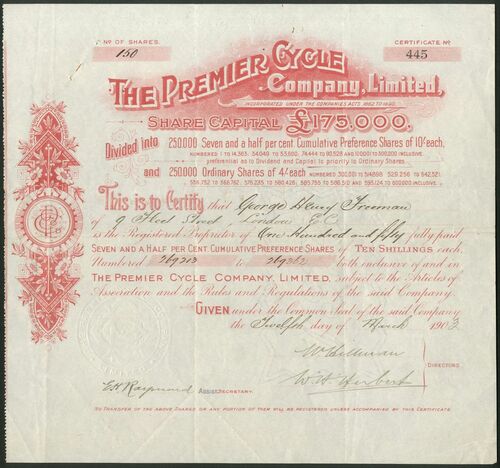 No OF SHARES.
150
CERTIFICATE No
445
THE PREMIER CYCLE
Company, Limited,
INCORPORATED UNDER THE COMPANIES ACTS 1862 TO 1890.
SHARE CAPITAL £175,000,
Divided into 250,000 Seven and a half per cent. Cumulative Preference Shares of 10/- each,
preferential as to Dividend and Capital in priority to Ordinary Shares
and 250,000 Ordinary Shares of 4/- each
This is to Certify that George Henry Freeman
of 9 Fleet Street, London E.C.
as the Registered Proprietor of One Hundred and fifty fully paid
SEVEN AND A HALF PER CENT. CUMULATIVE PREFERENCE SHARES OF TEN SHILLINGS each,
Numbered 269213 to 269362 both inclusive of and in
THE PREMIER CYCLE COMPANY, LIMITED, subject to the Articles of
Association and the Rules and Regulations of the said Company.
GIVEN under the Common Seal of the said Company
the Twelfth day of March 1903
W Hillman
W. H. Herbert
DIRECTORS
E H Raymond Assist. SECRETARY.
NO TRANSFER OF THE ABOVE SHARES OR ANY PORTION OF THEM WILL BE REGISTERED UNLESS ACCOMPANIED BY THIS CERTIFICATE